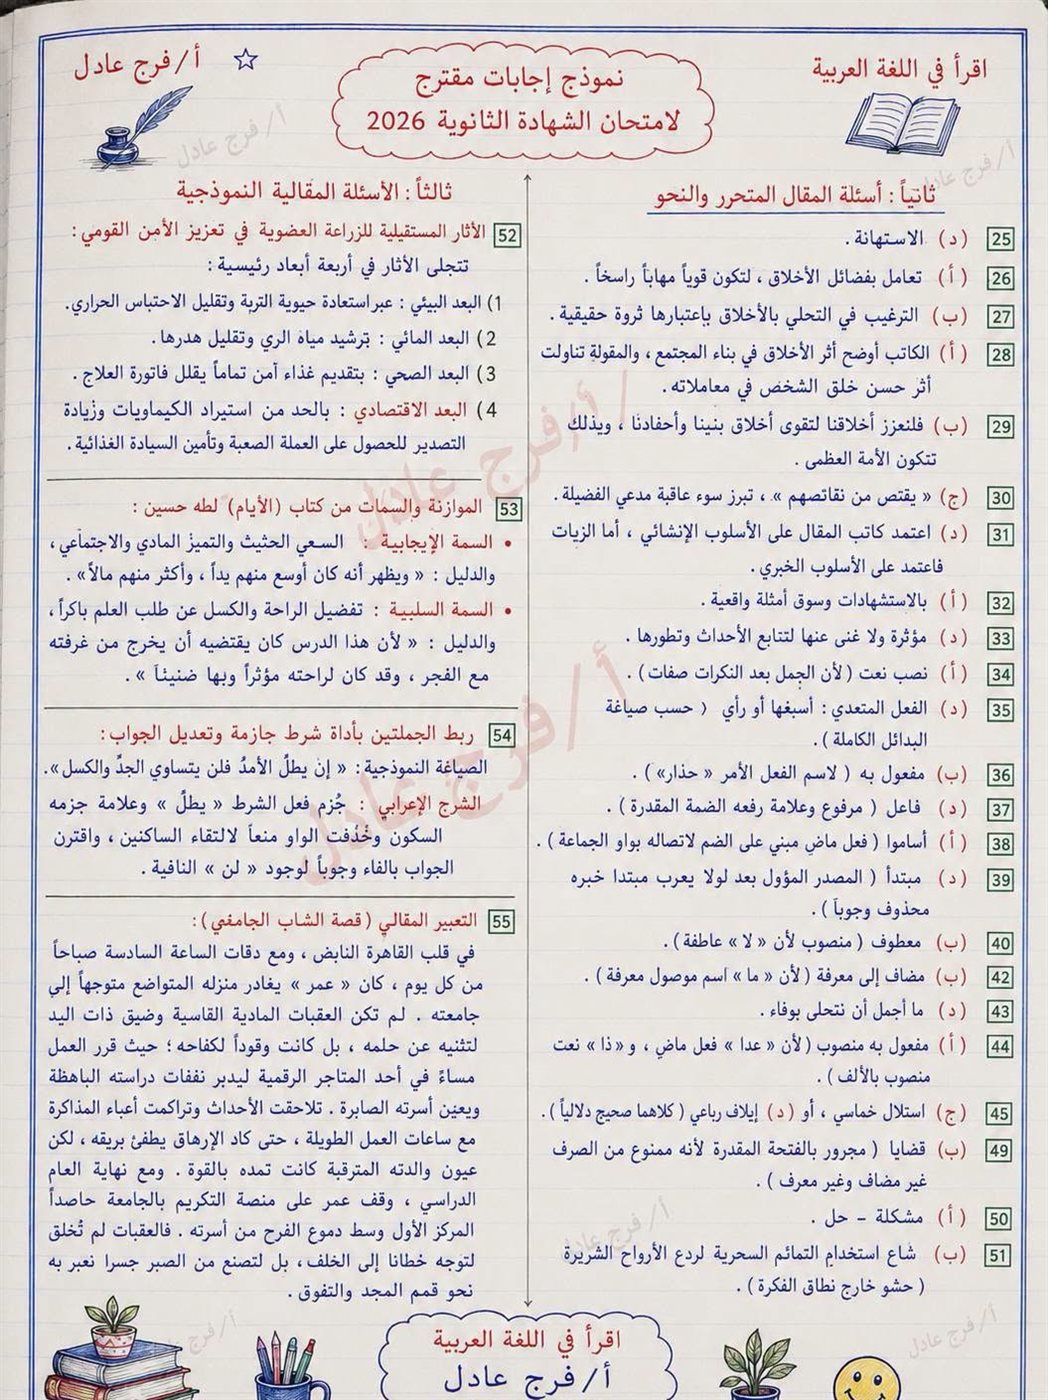 اقرأ في اللغة العربية
نموذج إجابات مقترح
لامتحان الشهادة الثانوية 2026
أ/ فرج عادل
ثانياً : أسئلة المقال المتحرر والنحو
25 (د) الاستهانة .
26 (أ) تعامل بفضائل الأخلاق ، لتكون قوياً مهاباً راسخاً .
27 (ب) الترغيب في التحلي بالأخلاق بإعتبارها ثروة حقيقية .
28 (أ) الكاتب أوضح أثر الأخلاق في بناء المجتمع ، والمقولة تناولت
أثر حسن خلق الشخص في معاملاته .
29 (ب) فلنعزز أخلاقنا لتقوى أخلاق بنينا وأحفادنا ، وبذلك
تتكون الأمة العظمى .
30 (ج) « يقتص من نقائصهم » ، تبرز سوء عاقبة مدعي الفضيلة .
31 (د) اعتمد كاتب المقال على الأسلوب الإنشائي ، أما الزيات
فاعتمد على الأسلوب الخبري .
32 (أ) بالاستشهادات وسوق أمثلة واقعية .
33 (د) مؤثرة ولا غنى عنها لتتابع الأحداث وتطورها .
34 (أ) نصب نعت ( لأن الجمل بعد النكرات صفات ) .
35 (د) الفعل المتعدي : أسبغها أو رأي ( حسب صياغة
البدائل الكاملة ) .
36 (ب) مفعول به ( لاسم الفعل الأمر « حذار» ) .
37 (د) فاعل ( مرفوع وعلامة رفعه الضمة المقدرة ) .
38 (أ) أساموا ( فعل ماضٍ مبني على الضم لاتصاله بواو الجماعة ) .
39 (د) مبتدأ ( المصدر المؤول بعد لولا يعرب مبتدا خبره
محذوف وجوباً ) .
40 (ب) معطوف ( منصوب لأن « لا » عاطفة ) .
42 (ب) مضاف إلى معرفة ( لأن « ما » اسم موصول معرفة ) .
43 (د) ما أجمل أن نتحلى بوفاء .
44 (أ) مفعول به منصوب ( لأن « عدا » فعل ماضٍ ، و « ذا » نعت
منصوب بالألف ) .
45 (ج) استلال خماسي ، أو (د) إيلاف رباعي ( كلاهما صحيح دلالياً ) .
49 (ب) قضايا ( مجرور بالفتحة المقدرة لأنه ممنوع من الصرف
غير مضاف وغير معرف ) .
50 (أ) مشكلة – حل .
51 (ب) شاع استخدام التمائم السحرية لردع الأرواح الشريرة
( حشو خارج نطاق الفكرة ) .
ثالثاً : الأسئلة المقالية النموذجية
52 الأثار المستقيلية للزراعة العضوية في تعزيز الأمن القومي :
تتجلى الأثار في أربعة أبعاد رئيسية :
1) البعد البيئي : عبر استعادة حيوية التربة وتقليل الاحتباس الحراري.
2) البعد المائي : بترشيد مياه الري وتقليل هدرها .
3) البعد الصحي : بتقديم غذاء آمن تماماً يقلل فاتورة العلاج .
4) البعد الاقتصادي : بالحد من استيراد الكيماويات وزيادة
التصدير للحصول على العملة الصعبة وتأمين السيادة الغذائية .
53 الموازنة والسمات من كتاب (الأيام) لطه حسين :
• السمة الإيجابية : السعي الحثيث والتميز المادي والاجتماعي ،
والدليل : « ويظهر أنه كان أوسع منهم يداً ، وأكثر منهم مالاً» .
• السمة السلبية : تفضيل الراحة والكسل عن طلب العلم باكراً ،
والدليل : « لأن هذا الدرس كان يقتضيه أن يخرج من غرفته
مع الفجر ، وقد كان لراحته مؤثراً وبها ضنيناً » .
54 ربط الجملتين بأداة شرط جازمة وتعديل الجواب :
الصياغة النموذجية : « إن يطلُ الأمدُ فلن يتساوي الجدّ والكسل» .
الشرح الإعرابي : جُزم فعل الشرط « يطلُ » وعلامة جزمه
السكون وحُذفت الواو منعاً لالتقاء الساكنين ، واقترن
الجواب بالفاء وجوباً لوجود « لن » النافية .
55 التعبير المقالي ( قصة الشاب الجامعي ) :
في قلب القاهرة النابض ، ومع دقات الساعة السادسة صباحاً
من كل يوم ، كان « عمر » يغادر منزله المتواضع متوجهاً إلي
جامعته . لم تكن العقبات المادية القاسية وضيق ذات اليد
لتثنيه عن حلمه ، بل كانت وقوداً لكفاحه ؛ حيث قرر العمل
مساءً في أحد المتاجر الرقمية ليدبر نفقات دراسته الباهظة
ويعين أسرته الصابرة . تلاحقت الأحداث وتراكمت أعباء المذاكرة
مع ساعات العمل الطويلة ، حتى كاد الإرهاق يطفئ بريقه ، لكن
عيون والدته المترقبة كانت تمده بالقوة . ومع نهاية العام
الدراسي ، وقف عمر على منصة التكريم بالجامعة حاصداً
المركز الأول وسط دموع الفرح من أسرته . فالعقبات لم تُخلق
لتوجه خطانا إلى الخلف، بل لتصنع من الصبر جسرا نعبر به
نحو قمم المجد والتفوق .
اقرأ في اللغة العربية
أ/ فرج عادل